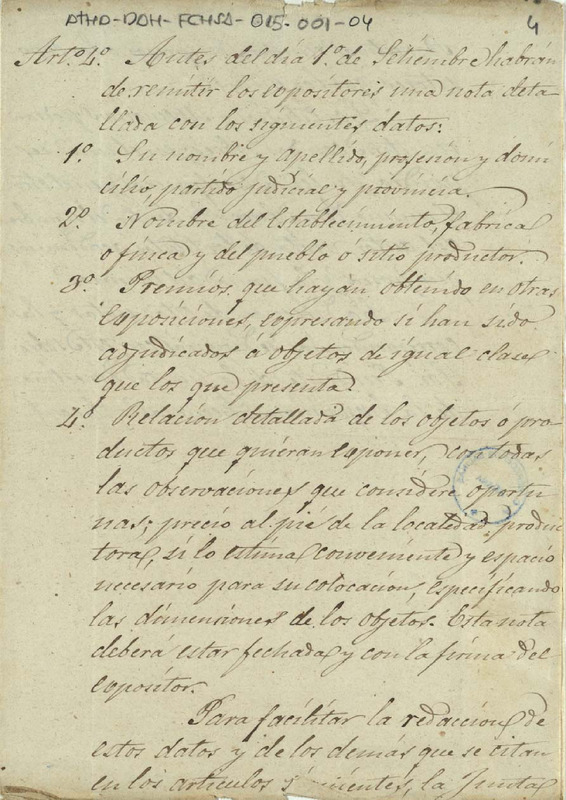 ATHA-DAH-FCHSA-015-001-04
4
Artº 4º Antes del dia 1º de Setiembre habrán
de remitir los espositores una nota deta-
llada con los siguientes datos:
1º Su nombre y apellido, profesión y domi
cilio, partido judicial y provincia.
2º Nombre del Establecimiento, fabrica
o finca y del pueblo ó sitio productor.
3º Premios, que hayan obtenido en otras
esposiciones, espresando si han sido
adjudicados á objetos de igual clase
que los que presenta.
4º Relación detallada de los objetos ó pro-
ductos que quieran esponer, con todas
las observaciones que considere oportu
nas; precio al pié de la localidad produc
tora, si lo estima conveniente y espacio
necesario para su colocacion, especificando
las dimensiones de los objetos. Esta nota
deberá estar fechada y con la firma del
espositor.
Para facilitar la redaccion de
estos datos y de los demás que se citan
en los articulos la Junta